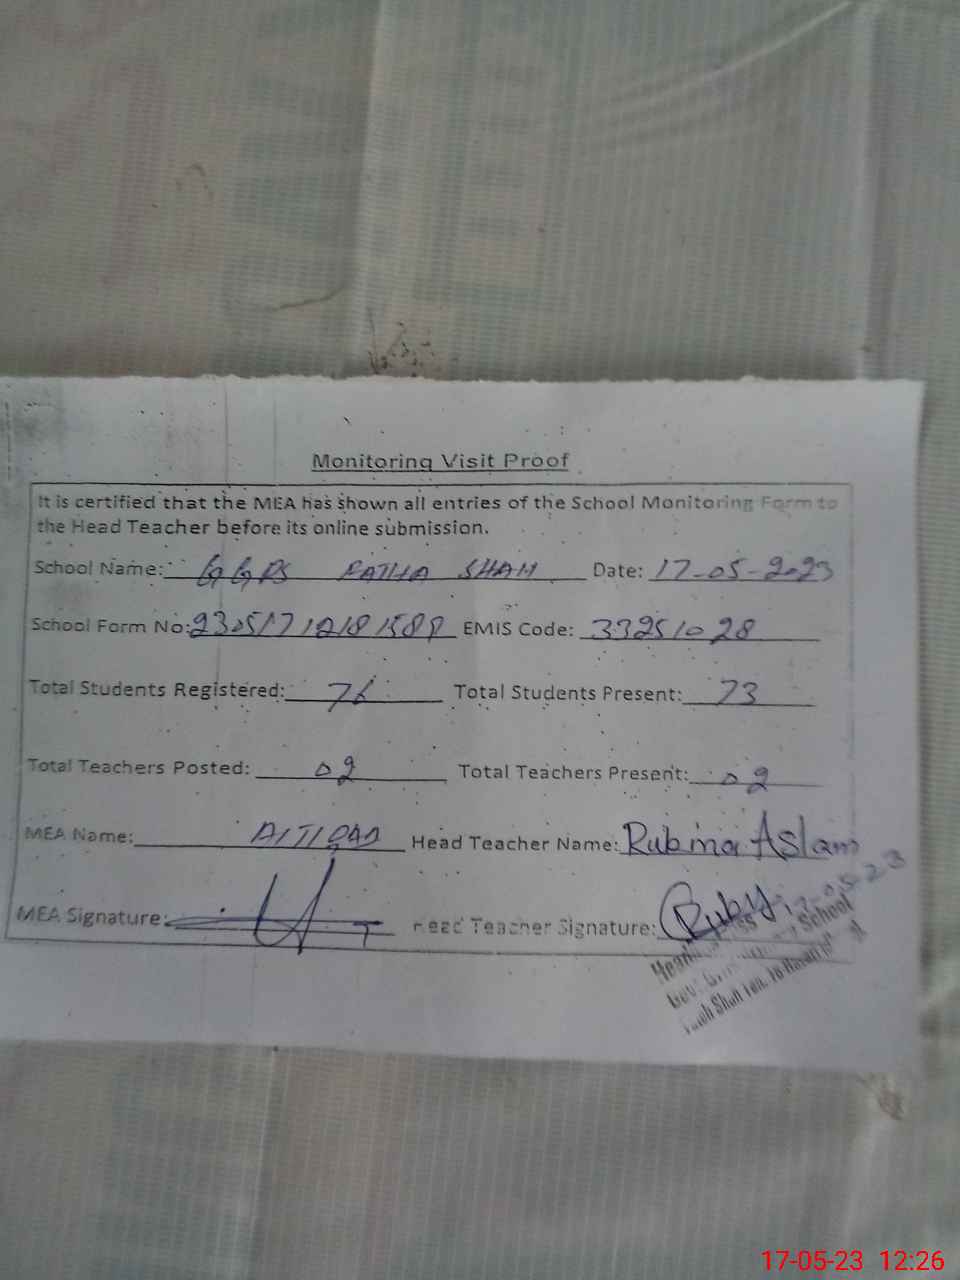 Monitoring Visit Proof
It is certified that the MEA has shown all entries of the School Monitoring Form to
the Head Teacher before its online submission.
School Name: GGPS FATHA SHAH Date: 17-05-2023
School Form No: EMIS Code: 33251028
Total Students Registered: 76 Total Students Present: 73
Total Teachers Posted: 02 Total Teachers Present: 02
MEA Name: Head Teacher Name: Rubina Aslam
MEA Signature: Head Teacher Signature: Ruby 17-05-23
School
17-05-23 12:26